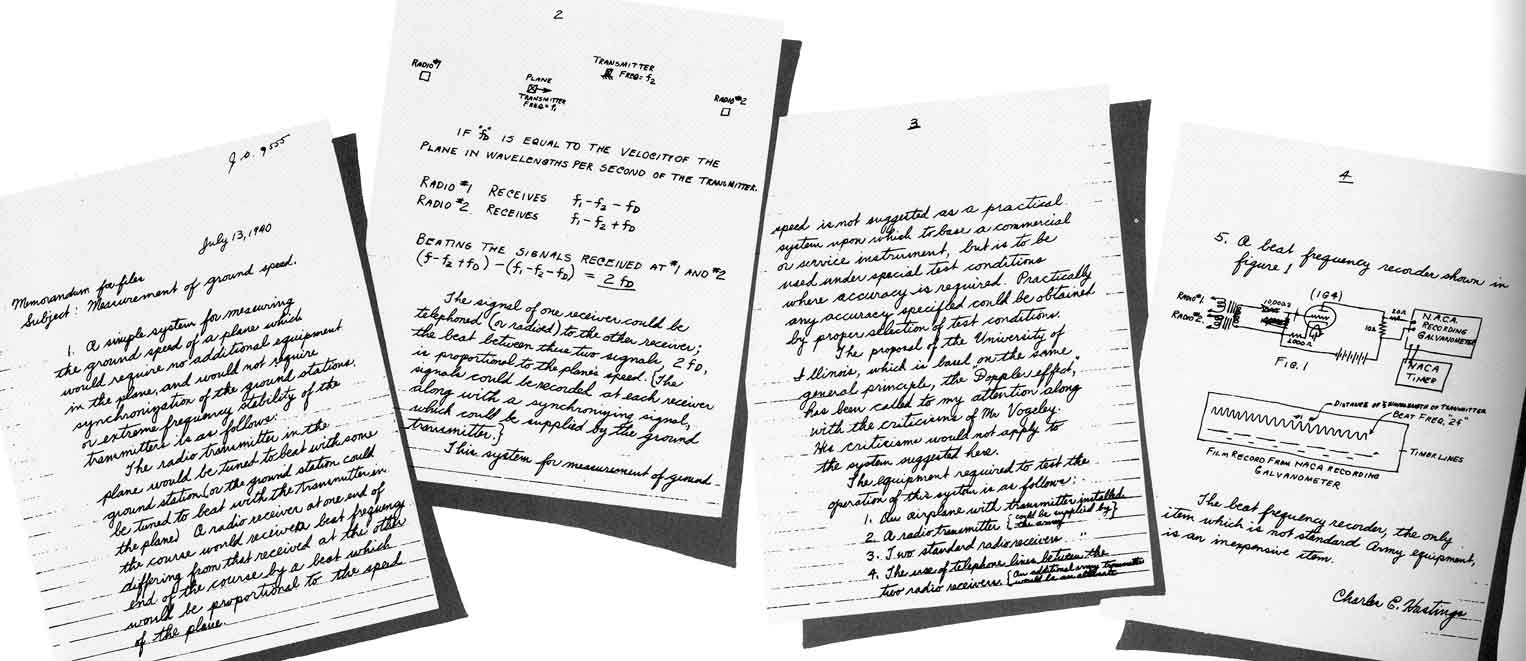 J.O. 9555
July 13, 1940
Memorandum for files
Subject: Measurement of ground speed.
1. A simple system for measuring
the ground speed of a plane which
would require no additional equipment
in the plane, and would not require
synchronization of the ground stations.
or extreme frequency stability of the
transmitters is as follows:
The radio transmitter in the
plane would be tuned to beat with some
ground station (or the ground station could
be tuned to beat with the transmitter in
the plane) A radio receiver at one end of
the course would receive a beat frequency
differing from that received at the other
end of the course by a beat which
would be proportional to the speed
of the plane.
2
RADIO #1
TRANSMITTER
FREQ = f2
PLANE
TRANSMITTER
FREQ = f1
RADIO #2
IF "fD" IS EQUAL TO THE VELOCITY OF THE
PLANE IN WAVELENGTHS PER SECOND OF THE TRANSMITTER.
RADIO #1 RECEIVES f1 - f2 - fD
RADIO #2 RECEIVES f1 - f2 + fD
BEATING THE SIGNALS RECEIVED AT #1 AND #2
(f - f2 + fD) - (f1 - f2 - fD) = 2 fD
The signal of one receiver could be
telephoned (or radioed) to the other receiver;
the beat between these two signals, 2 fD,
is proportional to the plane's speed. {The
signals could be recorded at each receiver
along with a synchronizing signal,
which could be supplied by the ground
transmitter.}
This system for measurement of ground
3
speed is not suggested as a practical
system upon which to base a commercial
or service instrument, but is to be
used under special test conditions
where accuracy is required. Practically
any accuracy specified could be obtained
by proper selection of test conditions.
The proposal of the University of
Illinois, which is based on the same
general principle, the "Doppler effect,"
has been called to my attention along
with the criticisms of Mr. Vogeley.
His criticisms would not apply to
the system suggested here.
The equipment required to test the
operation of this system is as follows:
1. An airplane with transmitter installed
2. A radio transmitter {could be supplied by}
the army
3. Two standard radio receivers "
4. The use of telephone lines between the
two radio receivers. {An additional army
would be an alternate
4
5. A beat frequency recorder shown in
figure 1
(1G4)
RADIO #1
RADIO #2
10,000Ω
1000Ω
10Ω
20Ω
N.A.C.A.
RECORDING
GALVANOMETER
NACA
TIMER
FIG. 1
DISTANCE OF ½ WAVELENGTH OF TRANSMITTER
BEAT FREQ. "2f"
TIMER LINES
FILM RECORD FROM NACA RECORDING
GALVANOMETER
The beat frequency recorder, the only
item which is not standard Army equipment,
is an inexpensive item.
Charles E. Hastings